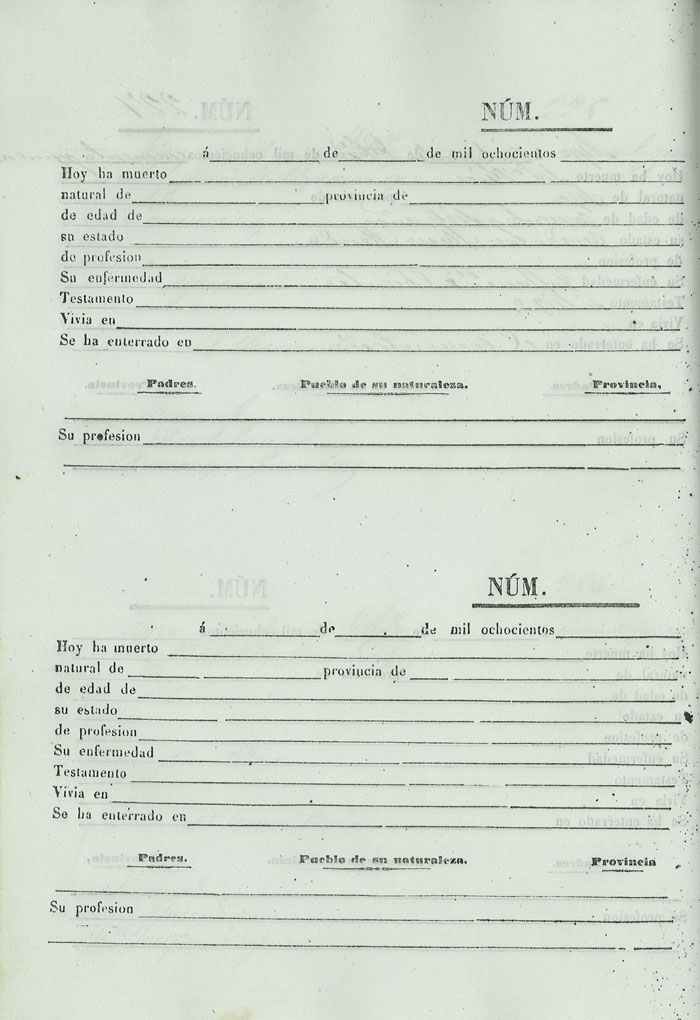 NÚM.
á de de mil ochocientos
Hoy ha muerto
natural de provincia de
de edad de
su estado
de profesion
Su enfermedad
Testamento
Vivia en
Se ha enterrado en
Padres. Pueblo de su naturaleza. Provincia,
Su profesion
NÚM.
á de de mil ochocientos
Hoy ha muerto
natural de provincia de
de edad de
su estado
de profesion
Su enfermedad
Testamento
Vivia en
Se ha enterrado en
Padres. Pueblo de su naturaleza. Provincia
Su profesion